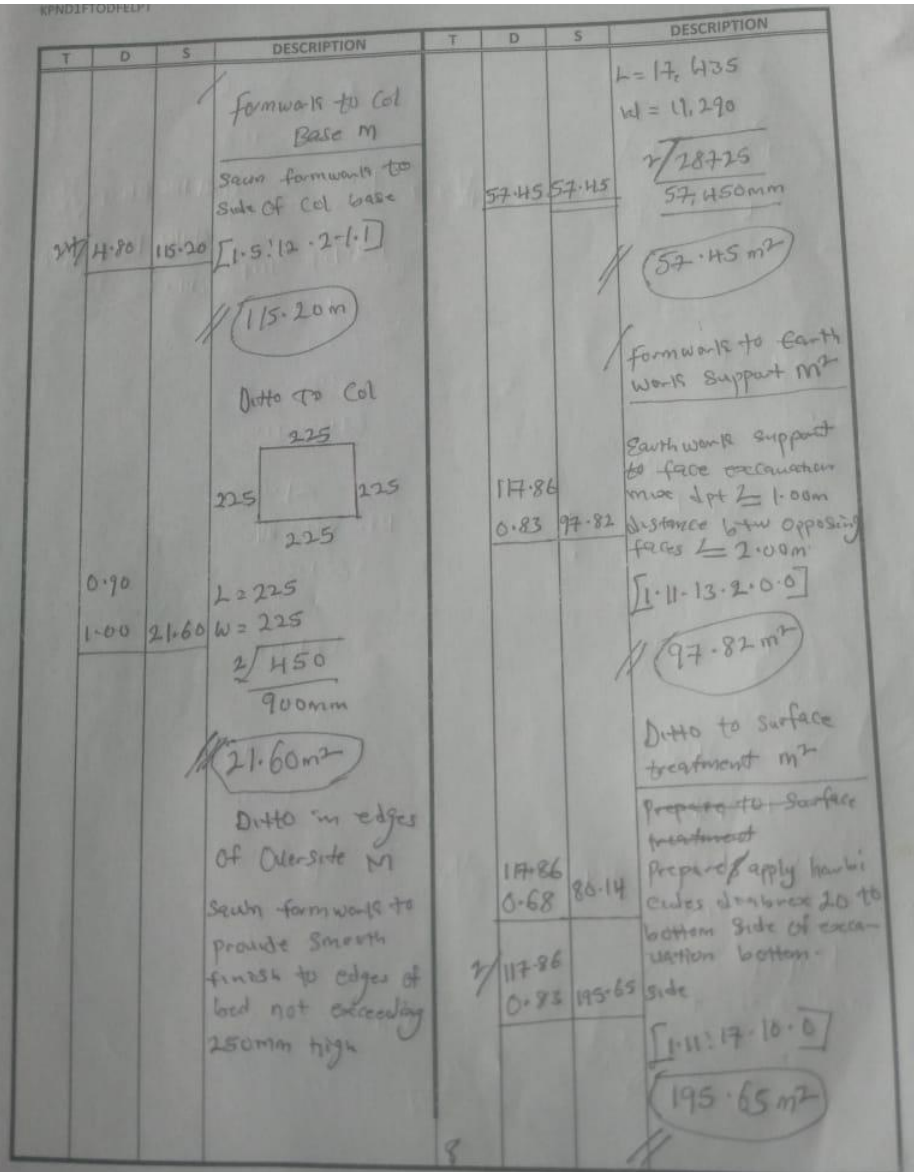 KPND1FTODFELPT
T D S DESCRIPTION
formwork to Col
Base M
Sawn formwork to
Side of Col base
24/ 4.80 115.20 [1.5:12.2-1.1]
115.20m
Ditto To Col
225
225 225
225
0.90 L = 225
1.00 21.60 W = 225
2/ 450
900mm
21.60m²
Ditto in edges
Of Oversite M
Sawn formwork to
provide Smooth
finish to edges of
bed not exceeding
250mm high
T D S DESCRIPTION
L = 17,435
W = 11,290
2/ 28725
57.45 57.45 57,450mm
57.45 m²
formwork to Earth
work Support m²
Earthwork support
to face excavation
117.86 max dpt ≤ 1.00m
0.83 97.82 distance btw opposing
faces ≤ 2.00m
[1.11-13.2.0.0]
97.82 m²
Ditto to Surface
treatment m²
Prepare to Surface
treatment
117.86 Prepare & apply
0.68 80.14 20 to
bottom Side of exca-
2/ 117.86 vation bottom-
0.83 195.65 side
[1.11:17.10.0]
195.65 m²
8